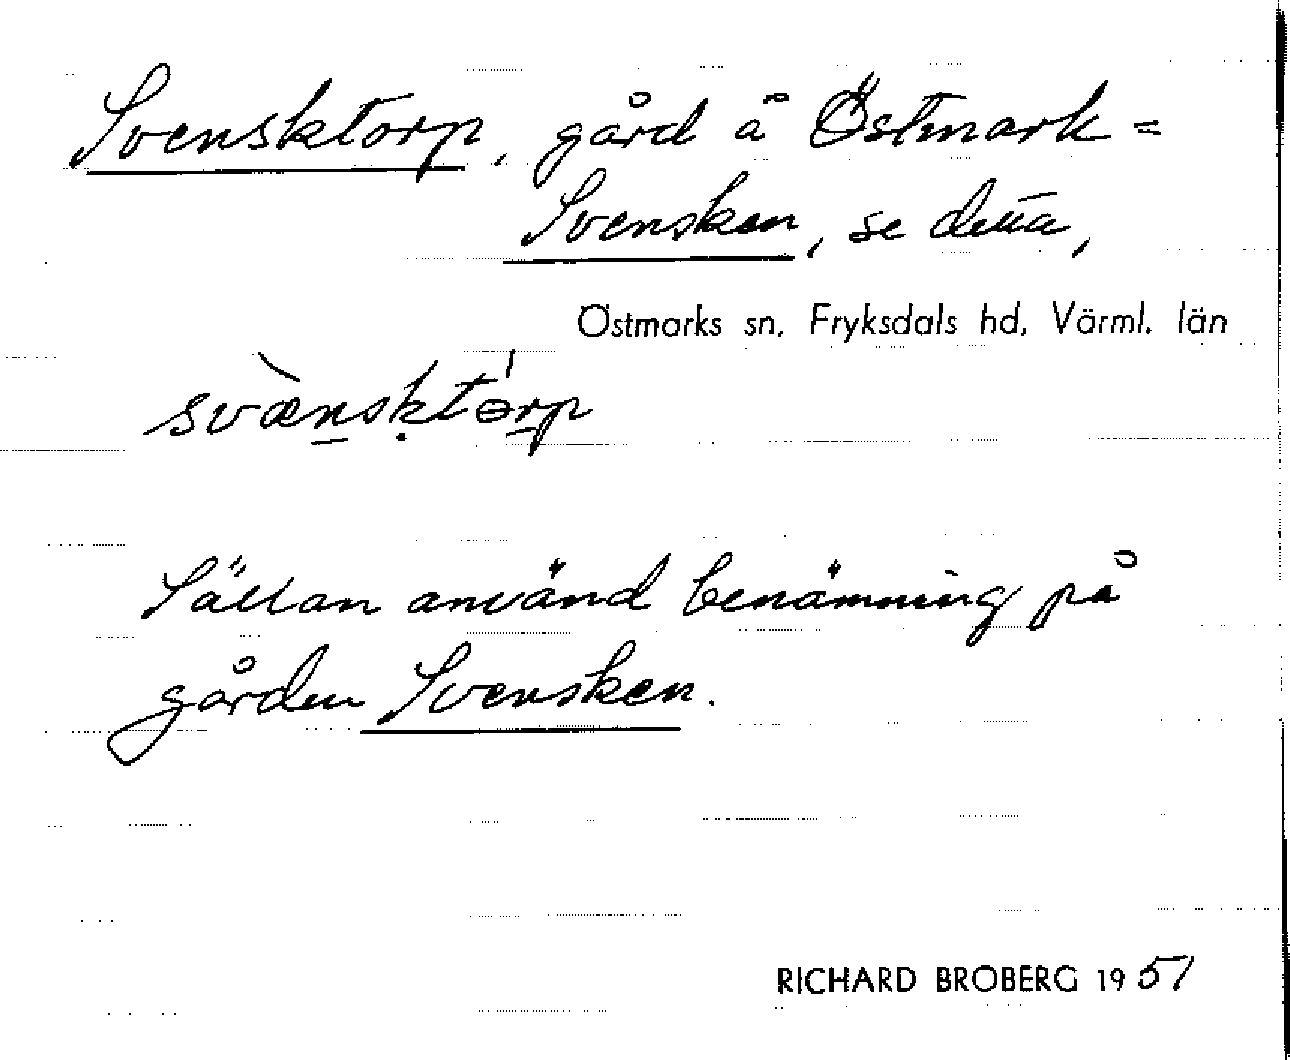 Svensktorp, gård å Östmark =
Svensken, se detta,
Östmarks sn, Fryksdals hd, Värml. län
svæ̀nsktɵ́rp
Sällan använd benämning på
gården Svensken.
RICHARD BROBERG 1951